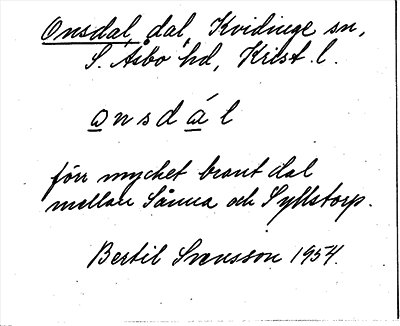 Onsdal, dal, Kvidinge sn,
S. Åsbo hd, Krist. l.
onsdál
förr mycket brant dal
mellan Sånna och Syllstorp.
Bertil Svensson 1954.